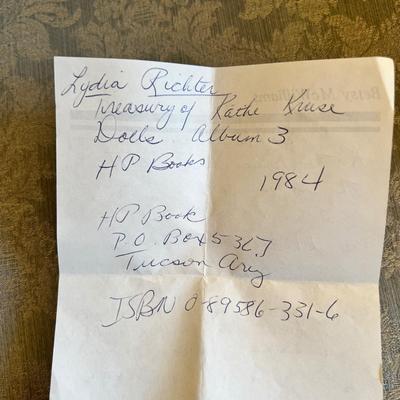 Lydia Richter
Treasury of Kathe Kruse
Dolls. Album 3
HP Books
1984
HP Book
P.O. Box 5367
Tucson Ariz
ISBN 0-89586-331-6
Betsy McWilliams